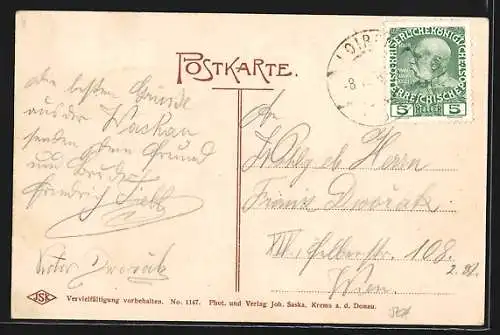 POSTKARTE.
LOIB
8
KAISERLICHE KÖNIGLICHE
ÖSTERREICHISCHE
5 HELLER 5
die besten Grüsse
aus der Wachau
senden Ihnen
und Bruder
Friedrich
Victor Dworžak
An
Wohlgeb Herrn
Franz Dworžak
108
2. St.
Wien.
JSK
Vervielfältigung vorbehalten. No. 1147. Phot. und Verlag Joh. Saska, Krems a. d. Donau.